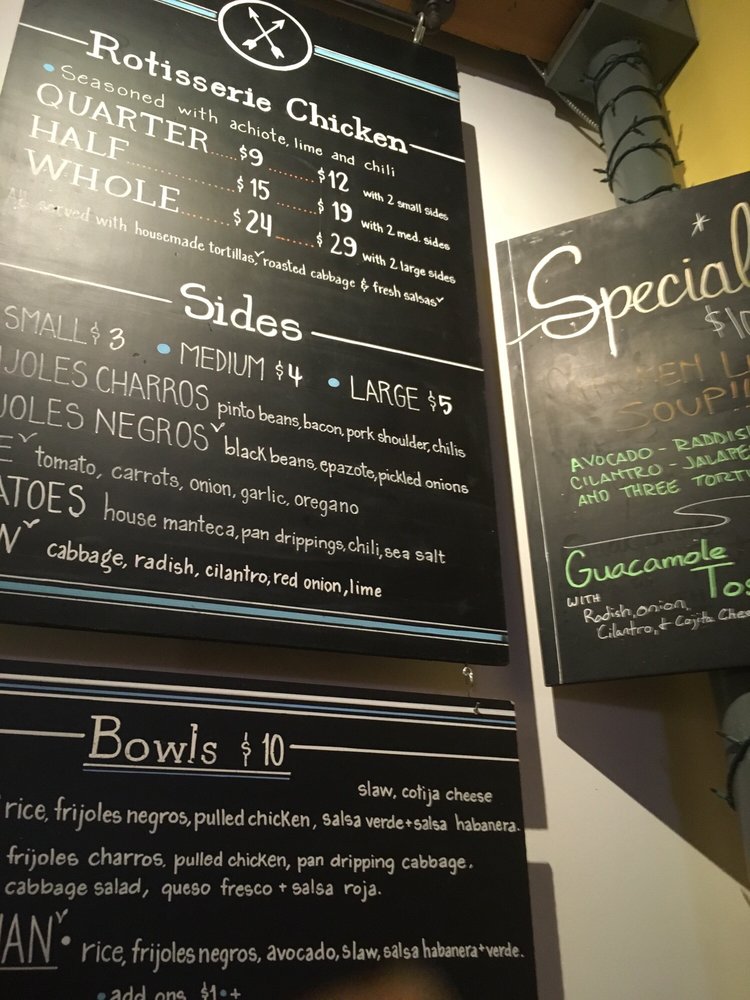 Rotisserie Chicken
• Seasoned with achiote, lime and chili
QUARTER..... $9 ........ $12 with 2 small sides
HALF.............. $15 ........ $19 with 2 med. sides
WHOLE........ $24 ....... $29 with 2 large sides
All served with housemade tortillas,ᵛ roasted cabbage & fresh salsasᵛ
Sides
SMALL $3 • MEDIUM $4 • LARGE $5
JOLES CHARROS pinto beans, bacon, pork shoulder, chilis
JOLES NEGROSᵛ black beans, epazote, pickled onions
Eᵛ tomato, carrots, onion, garlic, oregano
ATOES house manteca, pan drippings, chili, sea salt
Nᵛ cabbage, radish, cilantro, red onion, lime
Bowls $10
slaw, cotija cheese
rice, frijoles negros, pulled chicken, salsa verde + salsa habanera.
frijoles charros, pulled chicken, pan dripping cabbage.
cabbage salad, queso fresco + salsa roja.
ANᵛ • rice, frijoles negros, avocado, slaw, salsa habanera + verde.
• add ons $1 • +
Special
$1
SOUP
AVOCADO - RADDIS
CILANTRO - JALAPE
AND THREE TORT
Guacamole
Tos
WITH
Radish, onion,
Cilantro, & Cojita Chee